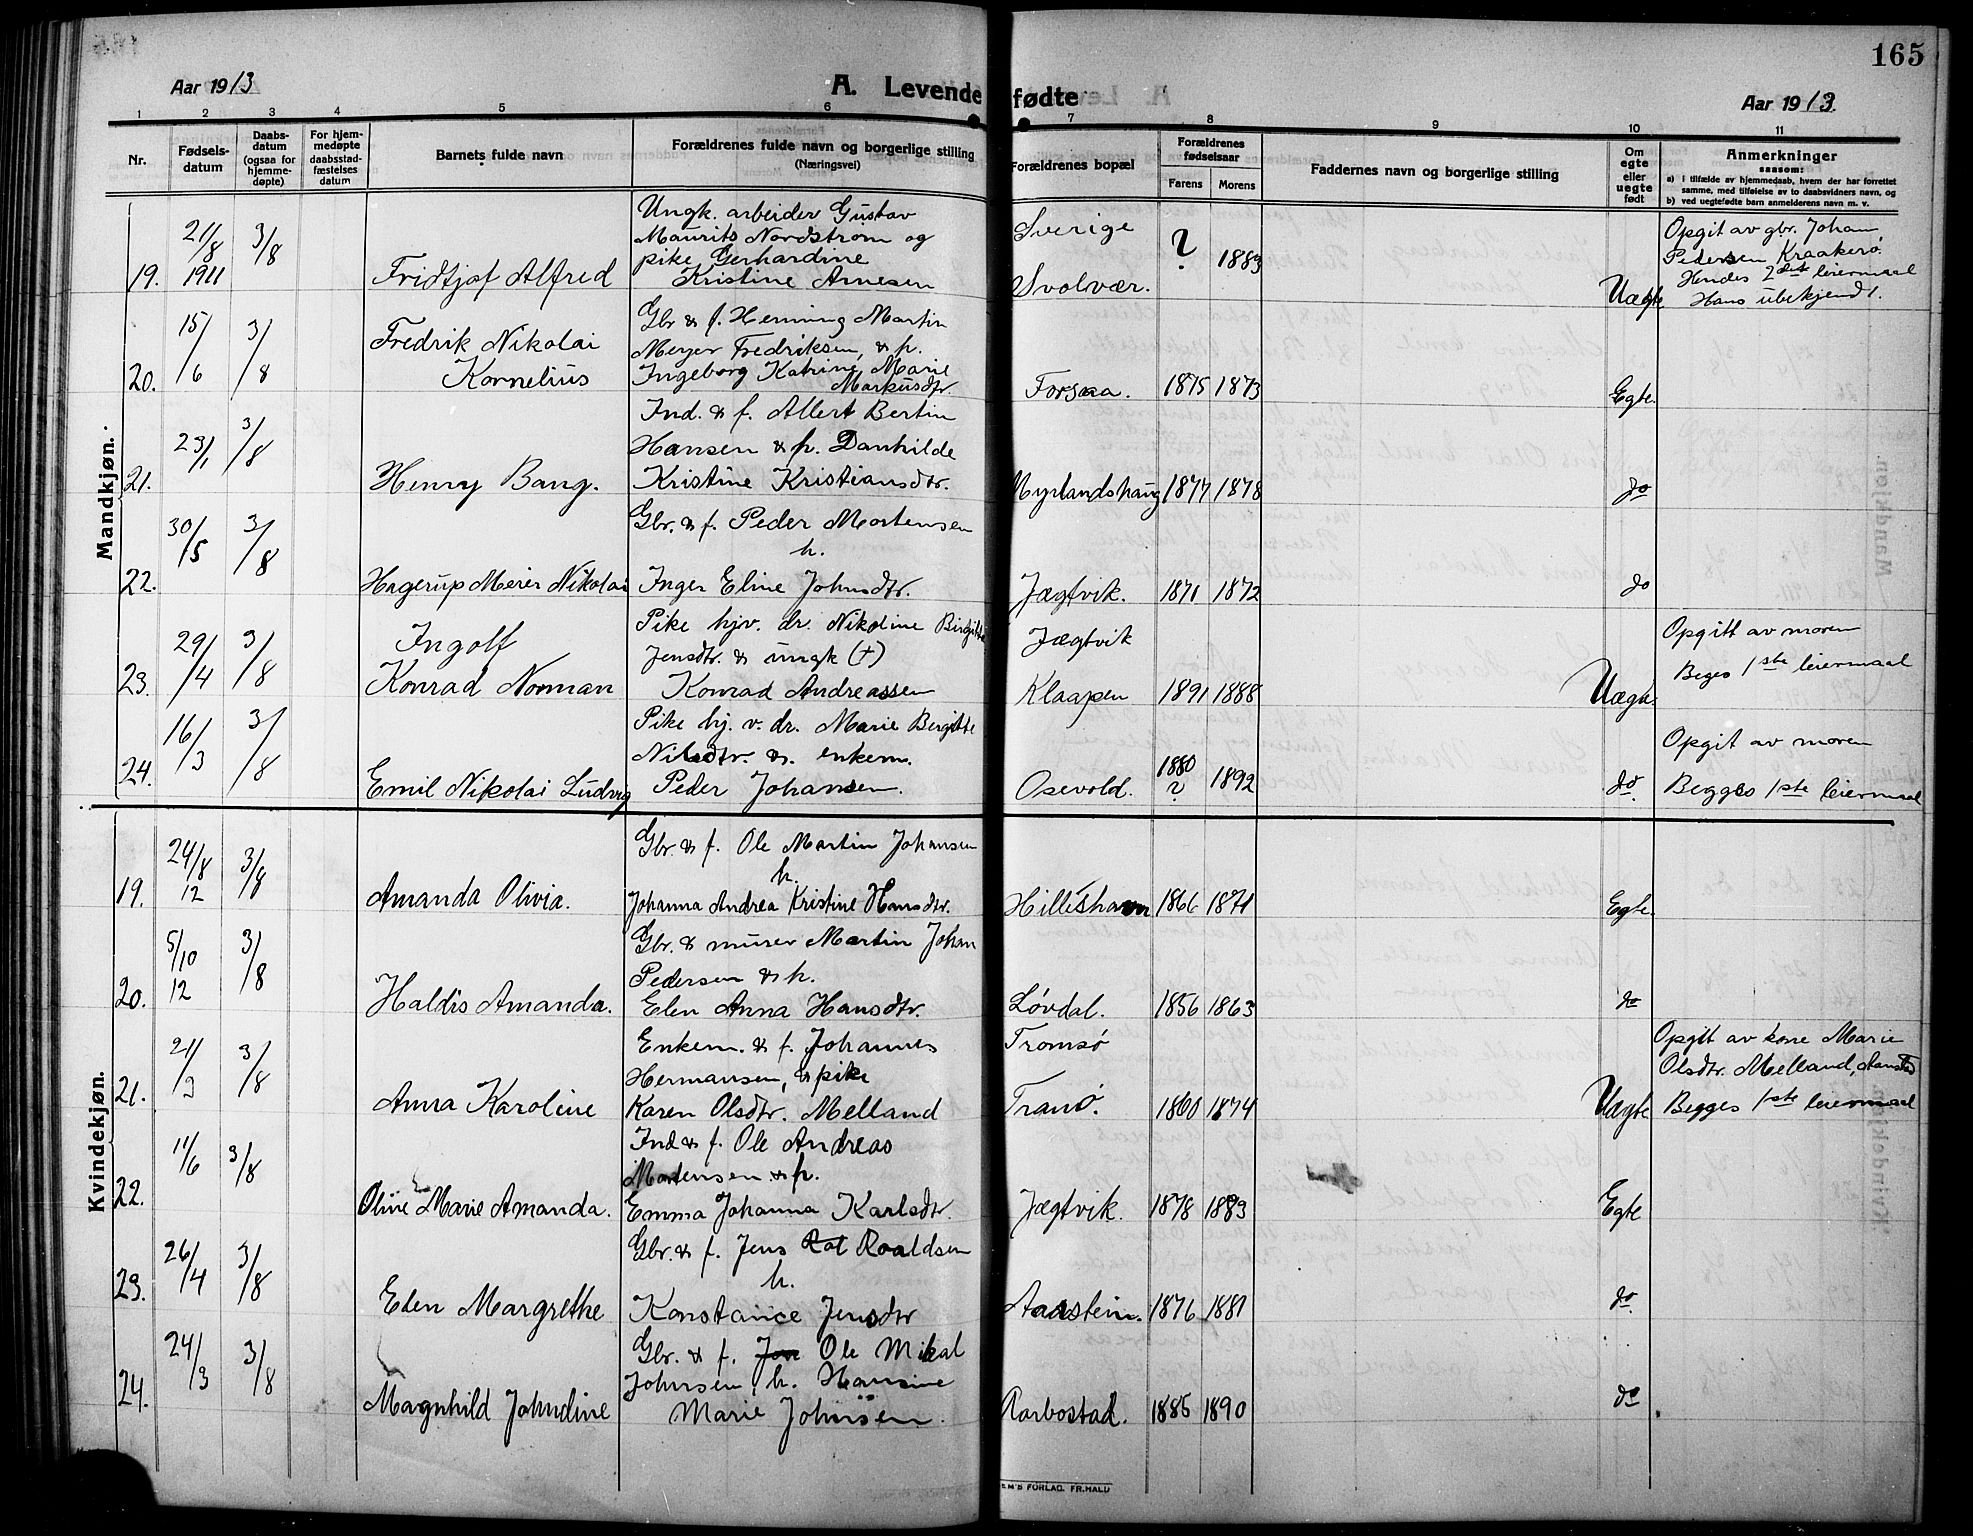 165
Aar 1913
A. Levendefødte
Aar 1913.
1 2 3 4 5 6 7 8 9 10 11
Nr.
Fødsels-
datum
Daabs-
datum
(ogsaa for
hjemme-
døpte)
For hjem-
medøpte
daabsstad-
fæstelses
datum
Barnets fulde navn
Forældrenes fulde navn og borgerlige stilling
(Næringsvei)
Forældrenes bopæl
Forældrenes
fødselsaar
Farens Morens
Faddernes navn og borgerlige stilling
Om
egte
eller
uegte
født
Anmerkninger
saasom:
a) i tilfælde av hjemmedaab, hvem der har forrettet
samme, med tilføielse av to daabsvidners navn, og
b) ved uegtefødte barn anmelderens navn m. v.
Mandkjøn.
19. 21/8 1911 3/8
Fridtjof Alfred
Ungk. arbeider Gustav
Maurits Nordstrøm og
pike Gerhardine
Kristine Arnesen
Sverige
Svolvær.
? 1883
Uægte
Opgit av gbr. Johan
Pedersen Kraakerø.
Hendes 2det leiermaal
Hans ubekjendt.
20. 15/6 3/8
Fredrik Nikolai
Kornelius
Gbr & f. Henning Martin
Meyer Fredriksen, & h.
Ingeborg Katrine Marie
Markusdtr.
Forsaa. 1875 1873 Egte.
21. 23/1 3/8
Henry Bang.
Ind. & f. Albert Bertin
Hansen & h. Danhilde
Kristine Kristiansdtr.
Myrlandshaug 1877 1878 do
22. 30/5 3/8
Hagerup Meier Nikolai
Gbr. & f. Peder Mortensen
h.
Inger Eline Johnsdtr.
Jægtvik. 1871 1872 do
23. 29/4 3/8
Ingolf
Konrad Norman
Pike hjv. dr. Nikoline Birgitte
Jensdtr. & ungk (+)
Konrad Andreassen
Jægtvik
Klaapen 1891 1888 Uægte.
Opgitt av moren
Beges 1ste leiermaal
24. 16/3 3/8
Emil Nikolai Ludvig
Pike hj. v. dr. Marie Bergitte
Nilsdtr. & enkem.
Peder Johansen.
Osevold. 1880 ? 1892 do.
Opgit av moren
Begges 1ste leiermaal
Kvindekjøn.
19. 24/8 12 3/8
Amanda Olivia.
Gbr. & f. Ole Martin Johansen
h.
Johanna Andrea Kristine Hansdtr.
Hilleshavn 1866 1871 Egte.
20. 5/10 12 3/8
Haldis Amanda.
Gbr. & murer Martin Johan
Pedersen & h.
Elen Anna Hansdtr.
Løvdal. 1856 1863 do
21. 21/3 3/8
Anna Karoline
Enkem. & f. Johannes
Hermansen, & pike
Karen Olsdtr. Melland
Tromsø
Tranø. 1860 1874 Uægte
Opgitt av kone Marie
Olsdtr. Melland,
Begges 1ste leiermaal
22. 11/6 3/8
Oline Marie Amanda.
Ind & f. Ole Andreas
Mortensen & h.
Emma Johanna Karlsdtr.
Jægtvik. 1878 1883 Egte
23. 26/4 3/8
Elen Margrethe
Gbr. & f. Jens Roaldsen
h.
Konstance Jensdtr
Aanstein. 1876 1881 do.
24. 24/3 3/8
Magnhild Johndine
Gbr. & f. Ole Mikal
Johnsen, h. Hansine
Marie Johnsen.
Rarbostad. 1885 1890 do
EM'S FORLAG. FR.HALD